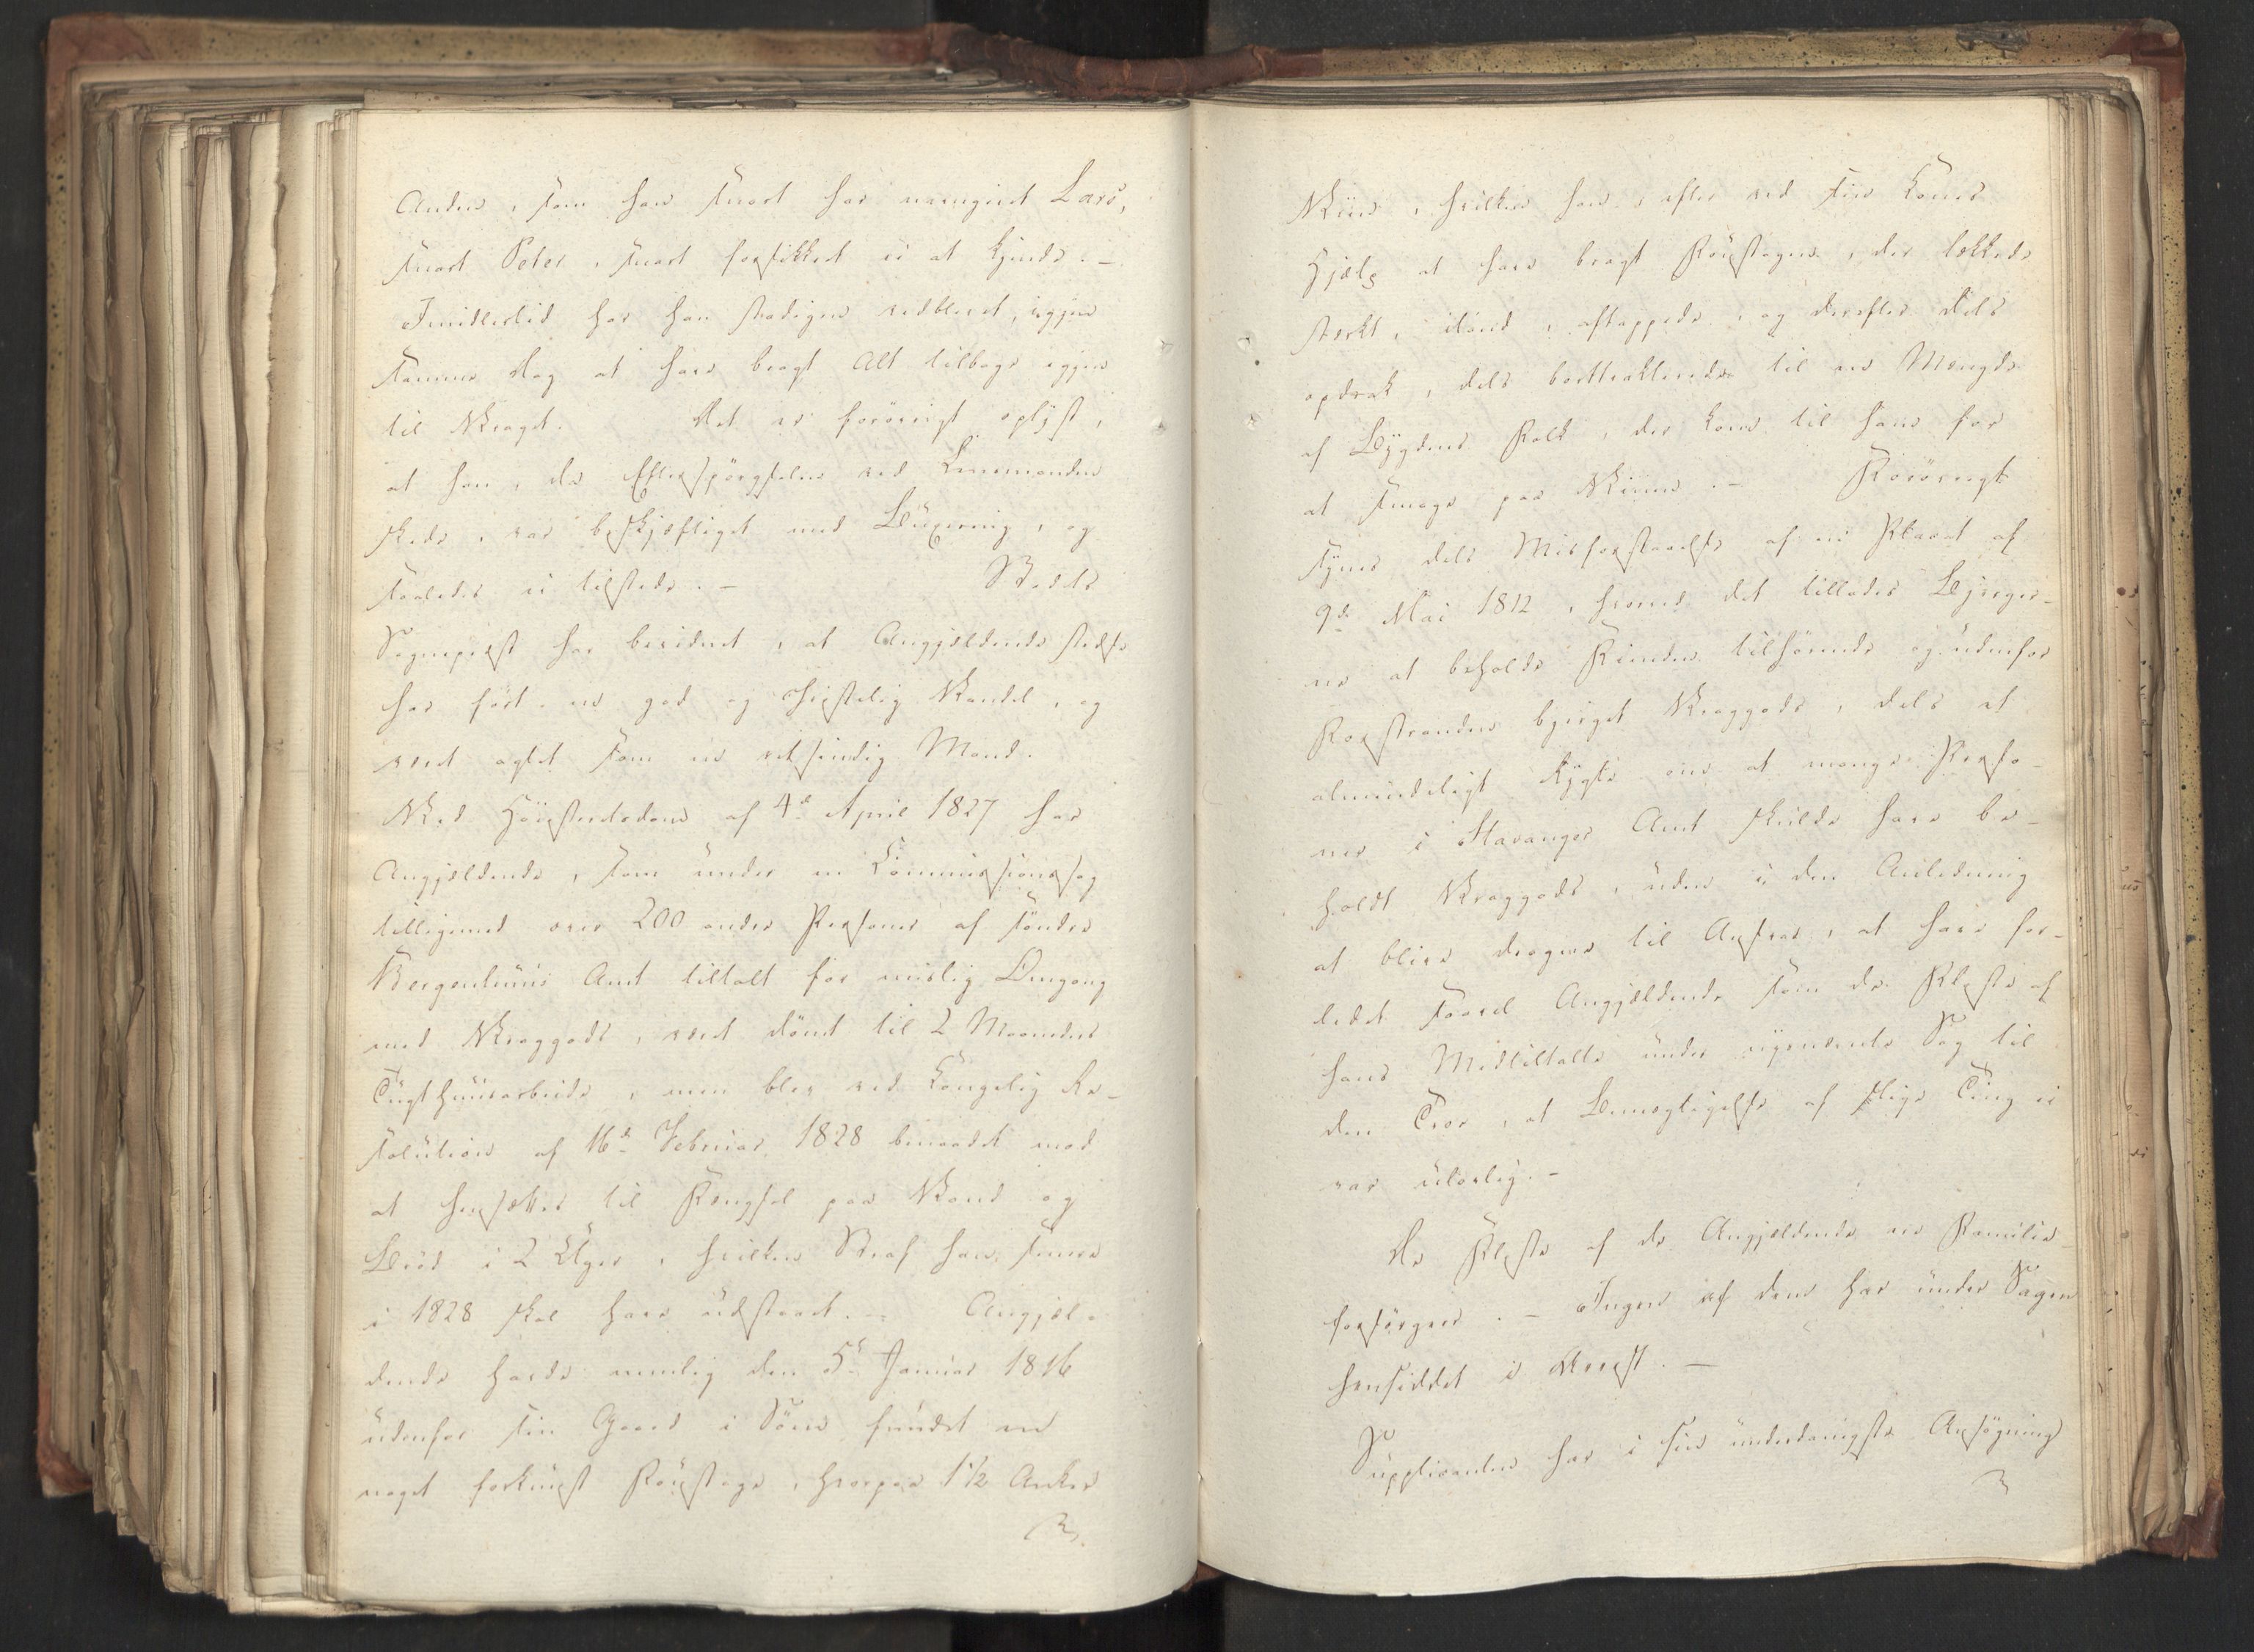 Anden, som han snart har navngivet Lars,
snart Peter, snart forsikkret ei at kjende. –
Imidlertid har han stadigen vedblevet, igjen
samme Dag at have bragt Alt tilbage igjen
til Vraget. Det er forövrigt oplyst,
at han, da Efterspörgselen ved Lensmanden
skede, var beskjæftiget med Biærning, og
saaledes ei tilstede. – Stedets
Sognepræst har bevidnet, at Angjældende stedse
har fört en god og christelig Vandel, og
været agtet som en retsindig Mand.
Ved Höiesteretsdom af 4de April 1827 har
Angjældende, som under en Commissionssag
tilligemed over 200 andre Personer af söndre
Bergenhuus Amt tiltalt for mislig Omgang
med Vraggods, været dömt til 2 Maaneders
Tugthuusarbeide, men blev ved Kongelig Re-
solution af 16de Februar 1828 benaadet med
at hensættes til Fængsel paa Vand og
Bröd i 2 Uger, hvilken Straf han samme
i 1828 skal have udstaaet. – Angjæl-
dende havde nemlig den 5te Januar 1816
udenfor sin Gaard i Söen fundet en
noget forkuist Föustage, hvorpaa 1 1/2 Anker
Viin, hvilken han, efter ved sin Kones
Hjælp at have bragt Föustagen, der lækkede
stærkt, iland, aftappede, og derefter dels
opdrak, dels borttrakterede til en Mængde
af Bygdens Folk, der kom til ham for
at smage paa Vinen. – Forövrigt
synes dels Misforstaaelse af en Placat af
9de Mai 1812, hvorved det tillodes Bjerger-
ne at beholde Fienden tilhörende og udenfor
Forstranden bjerget Vraggods, dels et
almindeligt Rygte om at mange Perso-
ner i Stavanger Amt skulde have be-
holdt Vraggods, uden i den Anledning
at blive dragne til Ansvar, at have for-
ledet saavel Angjældende som de Fleste af
hans Medtiltalte under nysnævnte Sag til
den Troe, at Bemægtigelse af slige Ting ei
var ulovlig. –
De Fleste af de Angjældende ere Familie-
forsörgere. – Ingen af dem har under Sagen
hensiddet i Arrest. –
Supplicanten har i sin underdanigste Ansögning